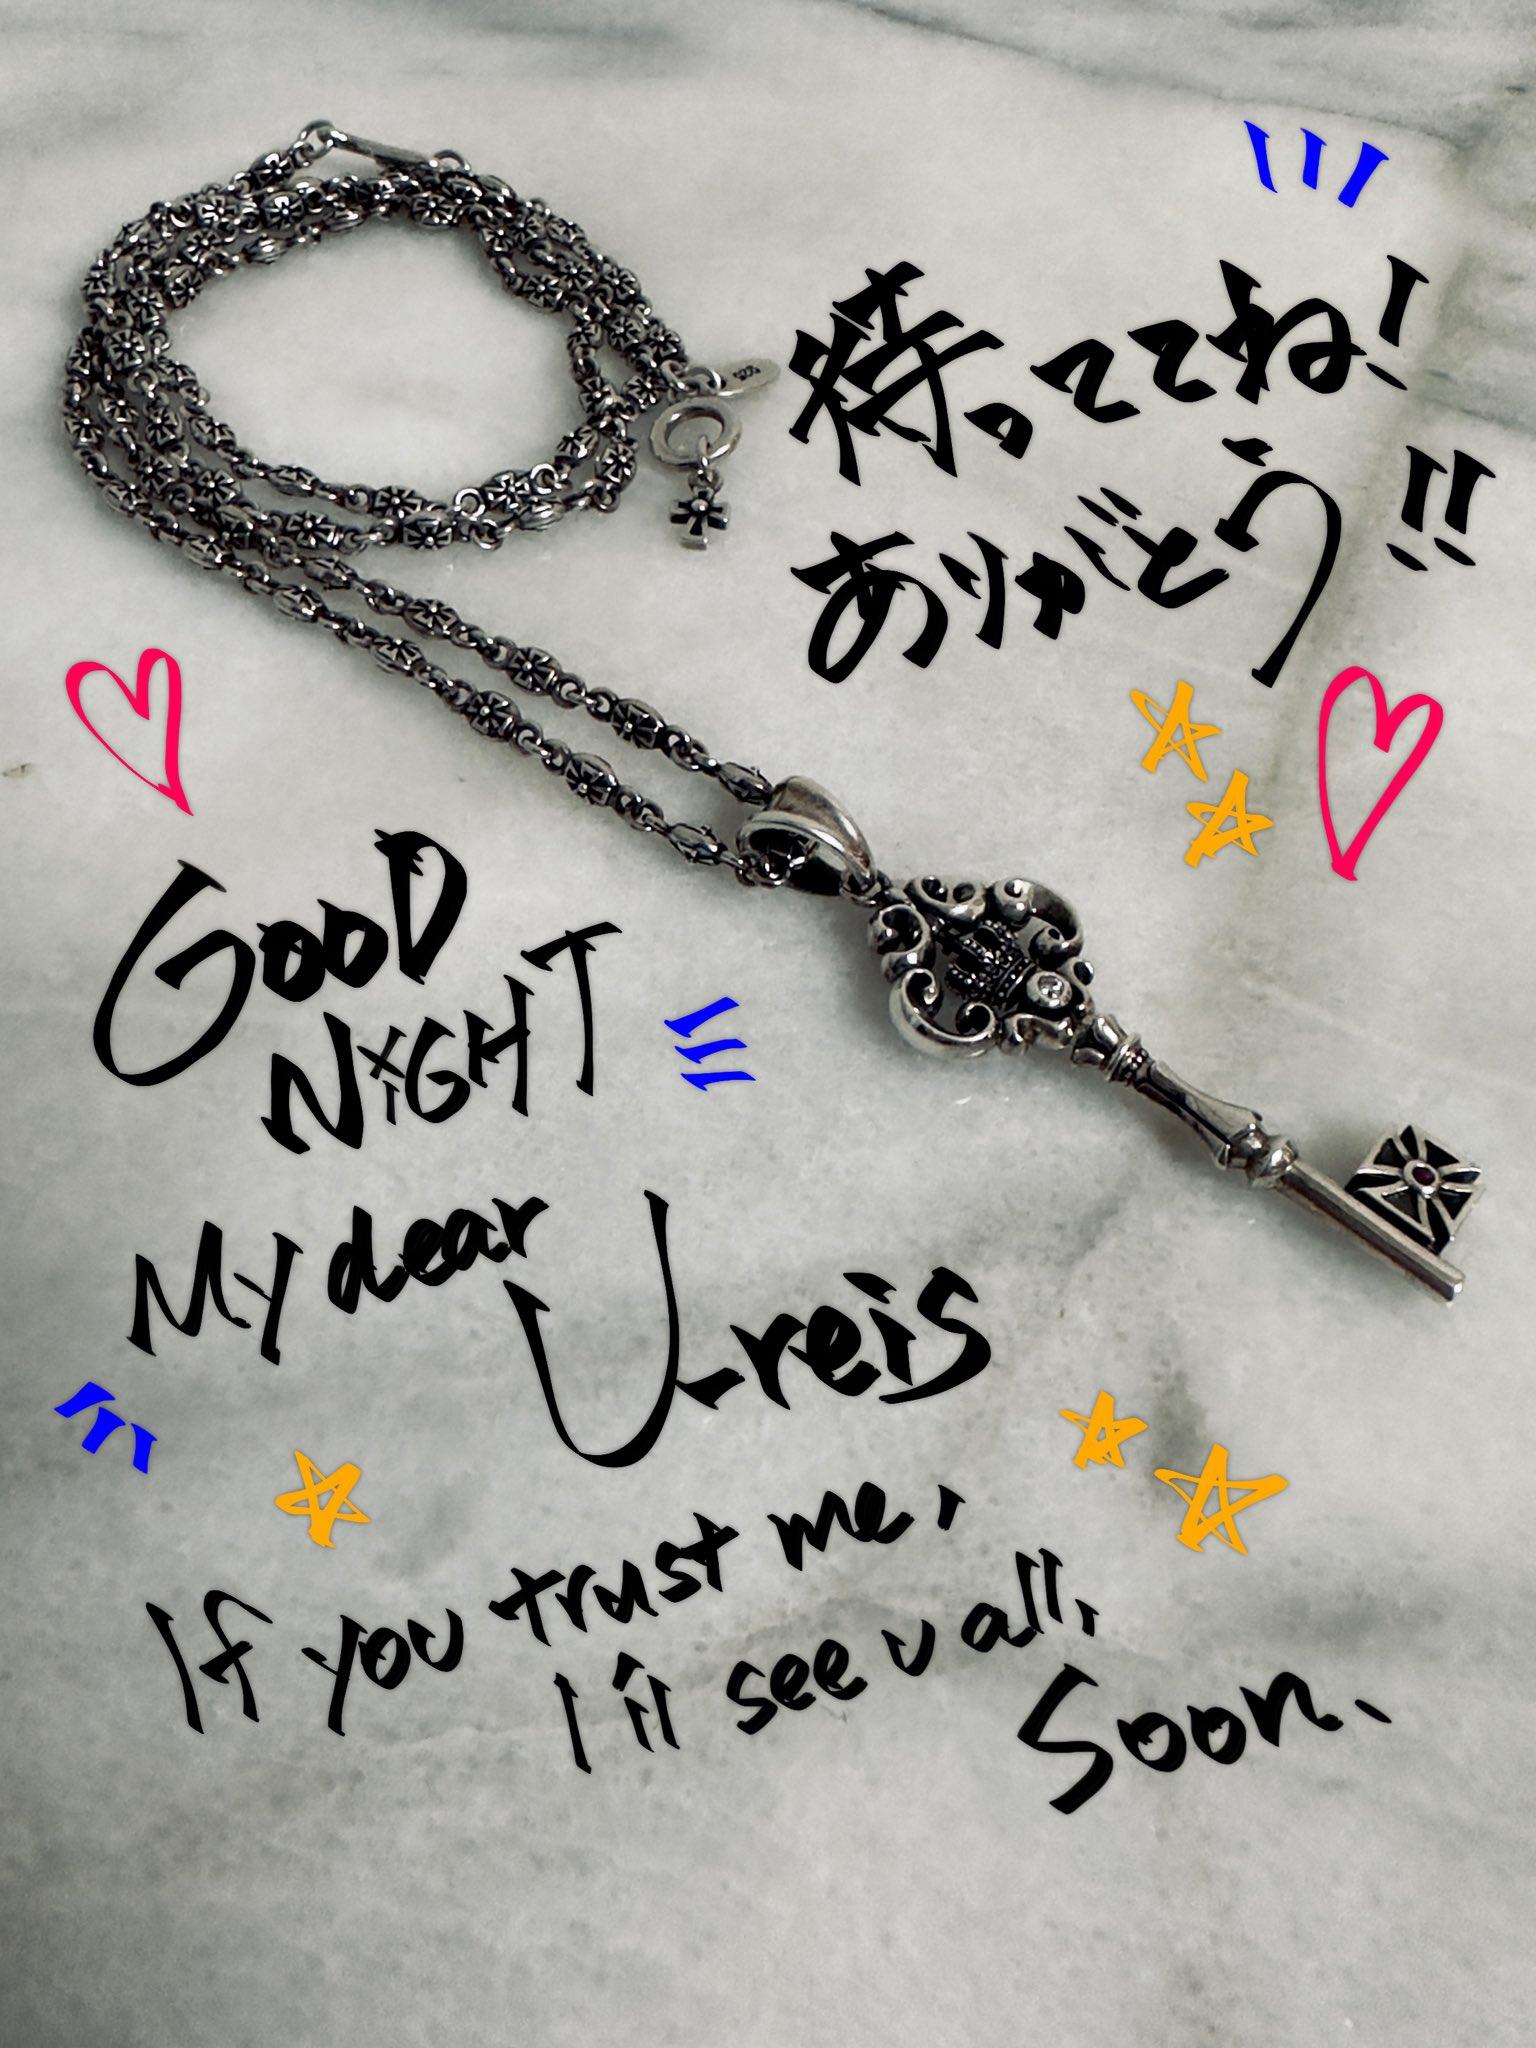 待っててね!
ありがとう!!
GOOD
NIGHT
My dear
U-reis
If you trust me,
I'll see u all,
Soon.